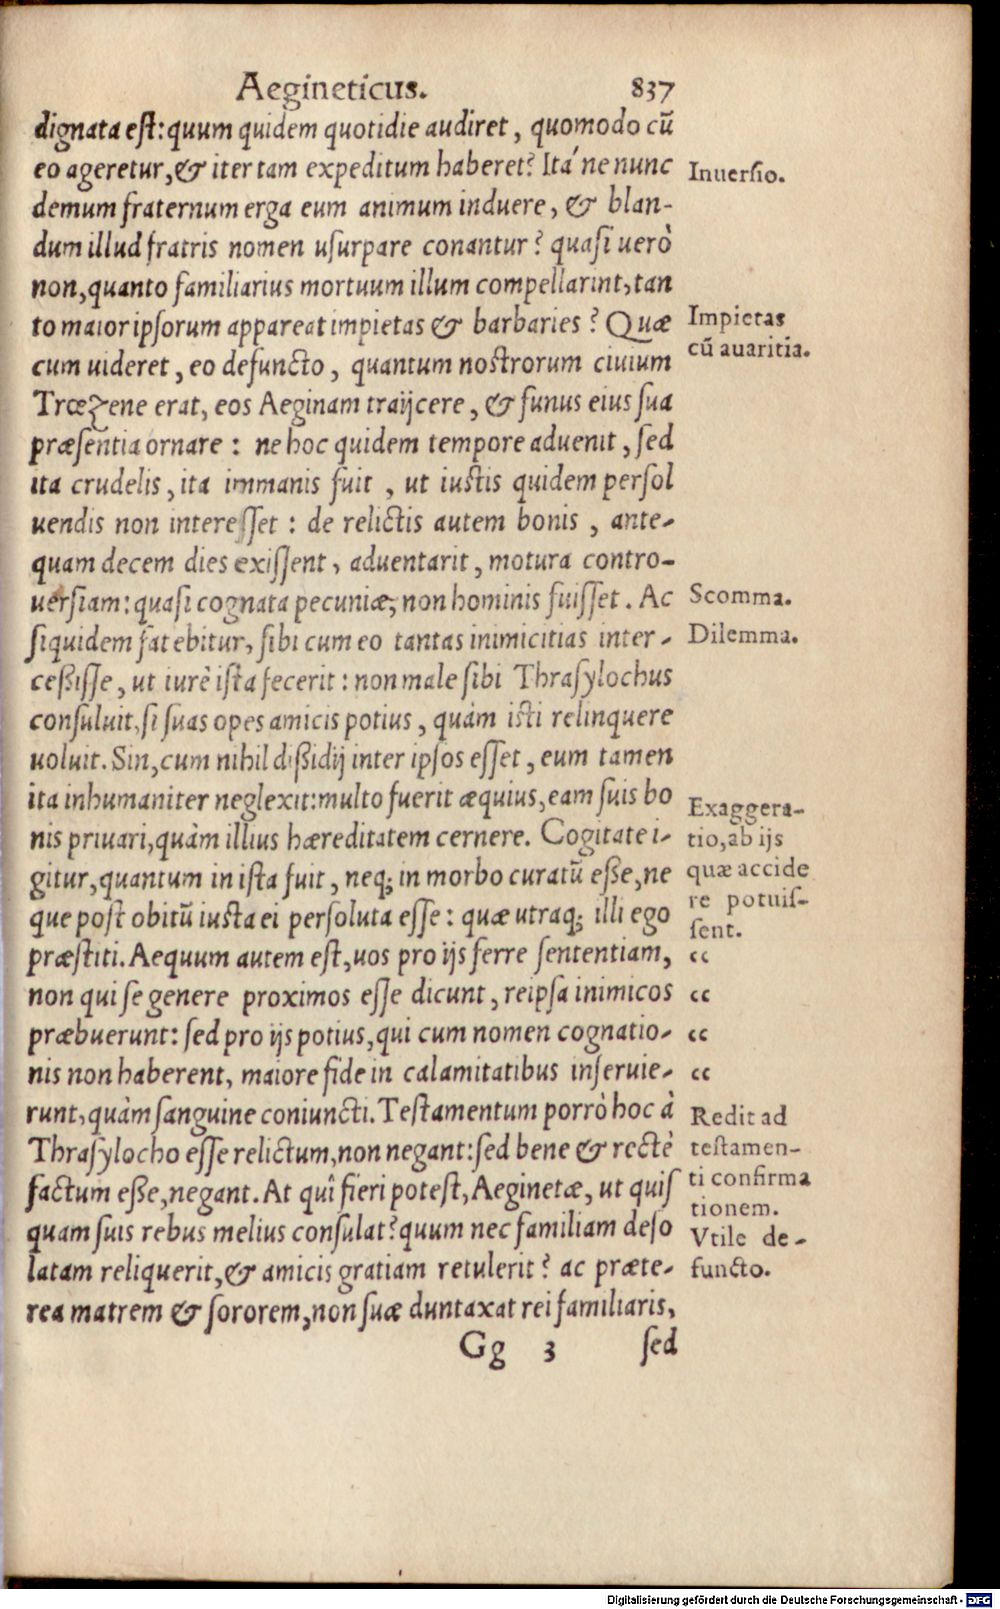 Aegineticus. 837
dignata est: quum quidem quotidie audiret, quomodo cū
eo ageretur, & iter tam expeditum haberet? Itá ne nunc
demum fraternum erga eum animum induere, & blan-
dum illud fratris nomen usurpare conantur? quasi uerò
non, quanto familiarius mortuum illum compellarint, tan
to maior ipsorum appareat impietas & barbaries? Quæ
cum uideret, eo defuncto, quantum nostrorum ciuium
Trœzene erat, eos Aeginam traijcere, & funus eius sua
præsentia ornare: ne hoc quidem tempore aduenit, sed
ita crudelis, ita immanis fuit, ut iustis quidem persol
uendis non interesset: de relictis autem bonis, ante-
quam decem dies exissent, aduentarit, motura contro-
uersiam: quasi cognata pecuniæ, non hominis fuisset. Ac
siquidem fatebitur, sibi cum eo tantas inimicitias inter-
ceßisse, ut iurè ista fecerit: non male sibi Thrasylochus
consuluit, si suas opes amicis potius, quàm isti relinquere
uoluit. Sin, cum nihil dißidij inter ipsos esset, eum tamen
ita inhumaniter neglexit: multo fuerit æquius, eam suis bo
nis priuari, quàm illius hæreditatem cernere. Cogitate i-
gitur, quantum in ista fuit, neq; in morbo curatū eße, ne
que post obitū iusta ei persoluta esse: quæ utraq; illi ego
præstiti. Aequum autem est, uos pro ijs ferre sententiam,
non qui se genere proximos esse dicunt, reipsa inimicos
præbuerunt: sed pro ijs potius, qui cum nomen cognatio-
nis non haberent, maiore fide in calamitatibus inseruie-
runt, quàm sanguine coniuncti. Testamentum porrò hoc à
Thrasylocho esse relictum, non negant: sed bene & rectè
factum eße, negant. At quî fieri potest, Aeginetæ, ut quis
quam suis rebus melius consulat? quum nec familiam deso
latam reliquerit, & amicis gratiam retulerit? ac præte-
rea matrem & sororem, non suæ duntaxat rei familiaris,
Gg 3 sed
Inuersio.
Impietas
cū auaritia.
Scomma.
Dilemma.
Exaggera-
tio, ab ijs
quæ accide
re potuis-
sent.
“
“
“
“
Redit ad
testamen-
ti confirma
tionem.
Vtile de-
functo.
Digitalisierung gefördert durch die Deutsche Forschungsgemeinschaft - DFG